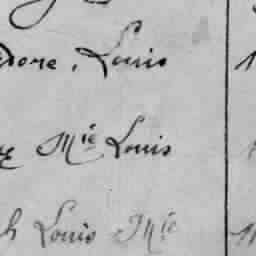 dore, Louis
Mie Louis
h Louis Mie